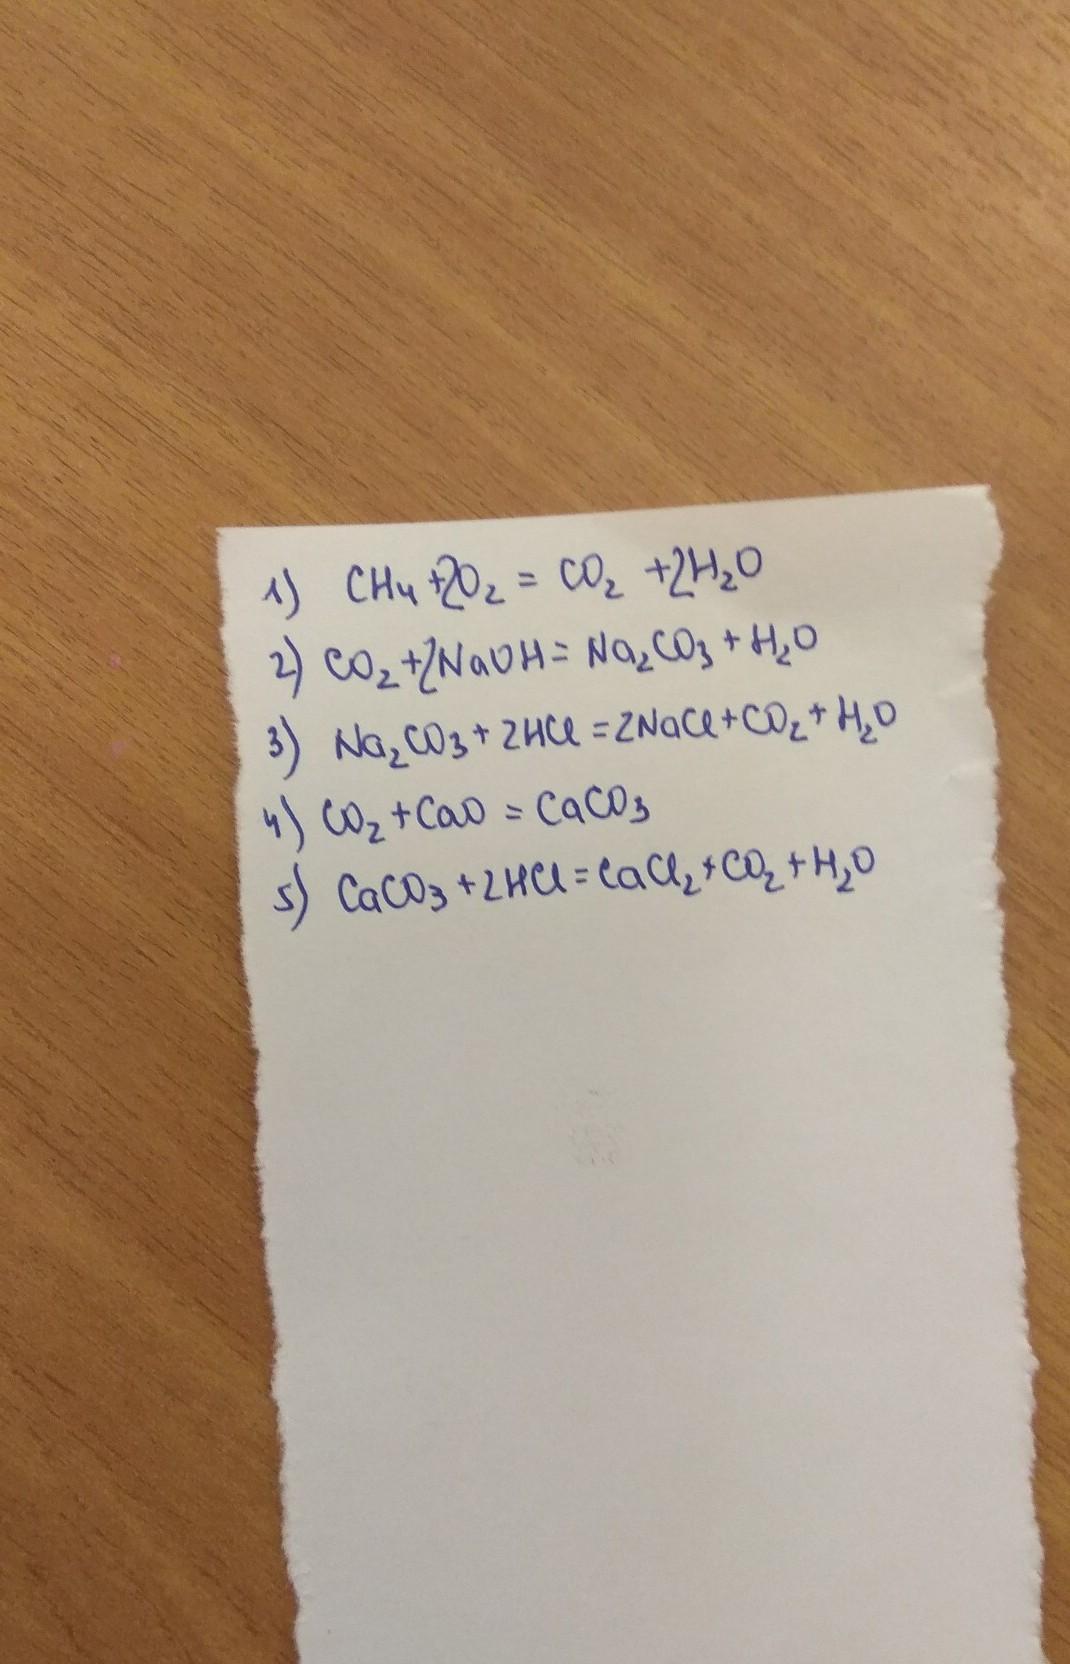 1) CH₄ + 2O₂ = CO₂ + 2H₂O
2) CO₂ + 2NaOH = Na₂CO₃ + H₂O
3) Na₂CO₃ + 2HCl = 2NaCl + CO₂ + H₂O
4) CO₂ + CaO = CaCO₃
5) CaCO₃ + 2HCl = CaCl₂ + CO₂ + H₂O